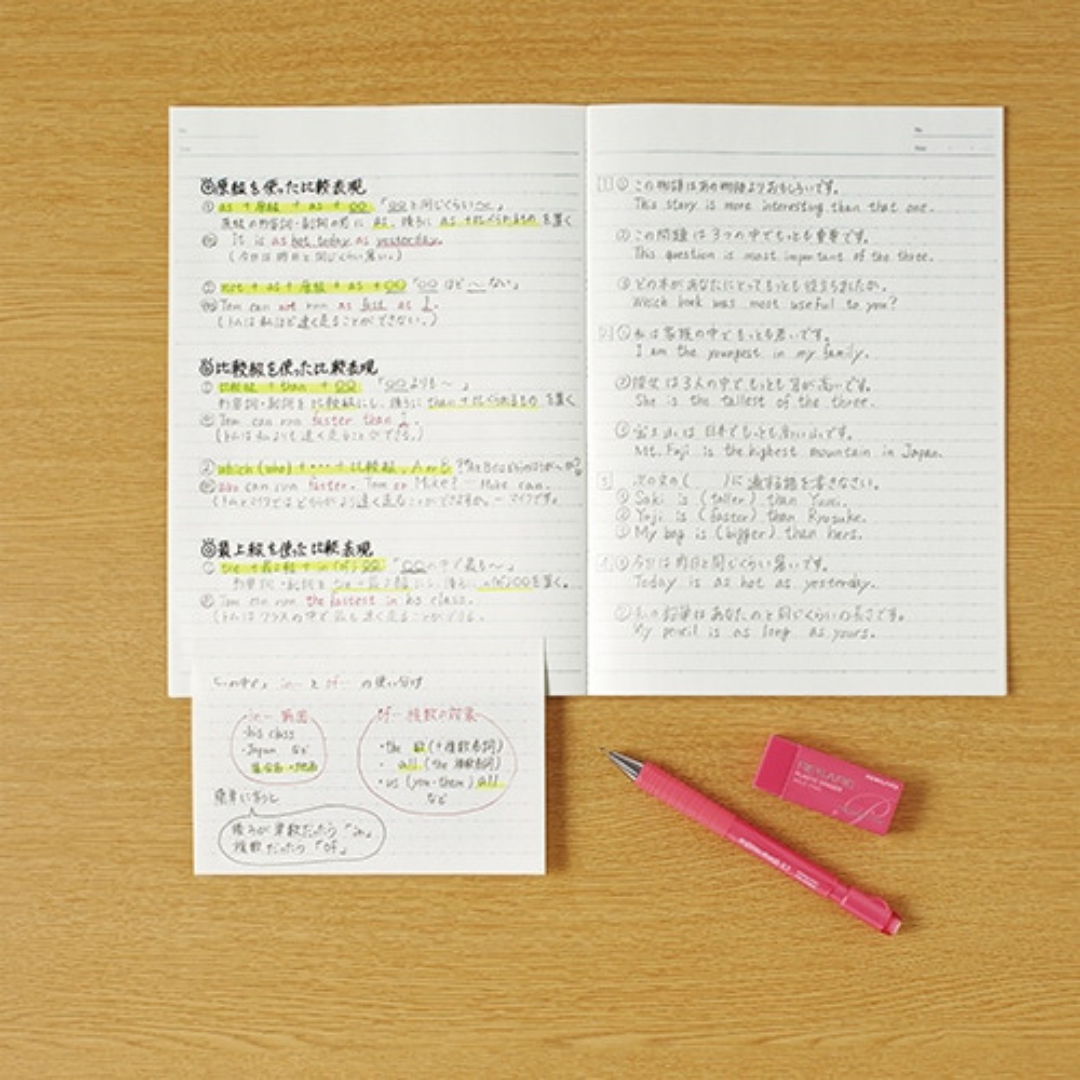 原級を使った比較表現
① as + 原級 + as + ○○ 「○○と同じくらい〜」
原級の形容詞・副詞の前に as、後ろに as +比べられるもの を置く
例 It is as hot today as yesterday.
(今日は昨日と同じくらい暑い。)
② not + as + 原級 + as + ○○ 「○○ほど〜ない」
例 Tom can not run as fast as I.
(トムは私ほど速く走ることができない。)
比較級を使った比較表現
① 比較級 + than + ○○ 「○○よりも〜」
形容詞・副詞を比較級にし、後ろに than +比べられるもの を置く
例 Tom can run faster than I.
(トムは私よりも速く走ることができる。)
② which (who) + ・・・ + 比較級, A or B ?
例 Who can run faster, Tom or Mike? — Mike can.
(トムとマイクではどちらがより速く走ることができますか。— マイクです。)
最上級を使った比較表現
① the +最上級 + in (of) ○○ 「○○の中で最も〜」
形容詞・副詞を the +最上級 にし、後ろに in(of)○○を置く。
例 Tom can run the fastest in his class.
(トムはクラスの中で最も速く走ることができる。)
「〜の中で」 in… と of… の使い分け
in… 範囲
・his class
・Japan など
of… 複数の
・the 数(+複数名詞)
・all (the 複数名詞)
・us (you・them) all
など
簡単に言うと
後ろが単数だったら「in」
複数だったら「of」
1 ① この物語はあの物語よりおもしろいです。
This story is more interesting than that one.
② この問題は3つの中でもっとも重要です。
This question is most important of the three.
③ どの本があなたにとってもっとも役立ちましたか。
Which book was most useful to you?
2 ① 私は家族の中でもっとも若いです。
I am the youngest in my family.
② 彼女は3人の中でもっとも背が高いです。
She is the tallest of the three.
③ 富士山は日本でもっとも高い山です。
Mt. Fuji is the highest mountain in Japan.
3 次の文の( )に適する語を書きなさい。
① Saki is (taller) than Yumi.
② Yuji is (faster) than Ryusuke.
③ My bag is (bigger) than hers.
4 ① 今日は昨日と同じくらい暑いです。
Today is as hot as yesterday.
② 私の鉛筆はあなたのと同じくらいの長さです。
My pencil is as long as yours.
PLASTIC ERASER
KOKUYO